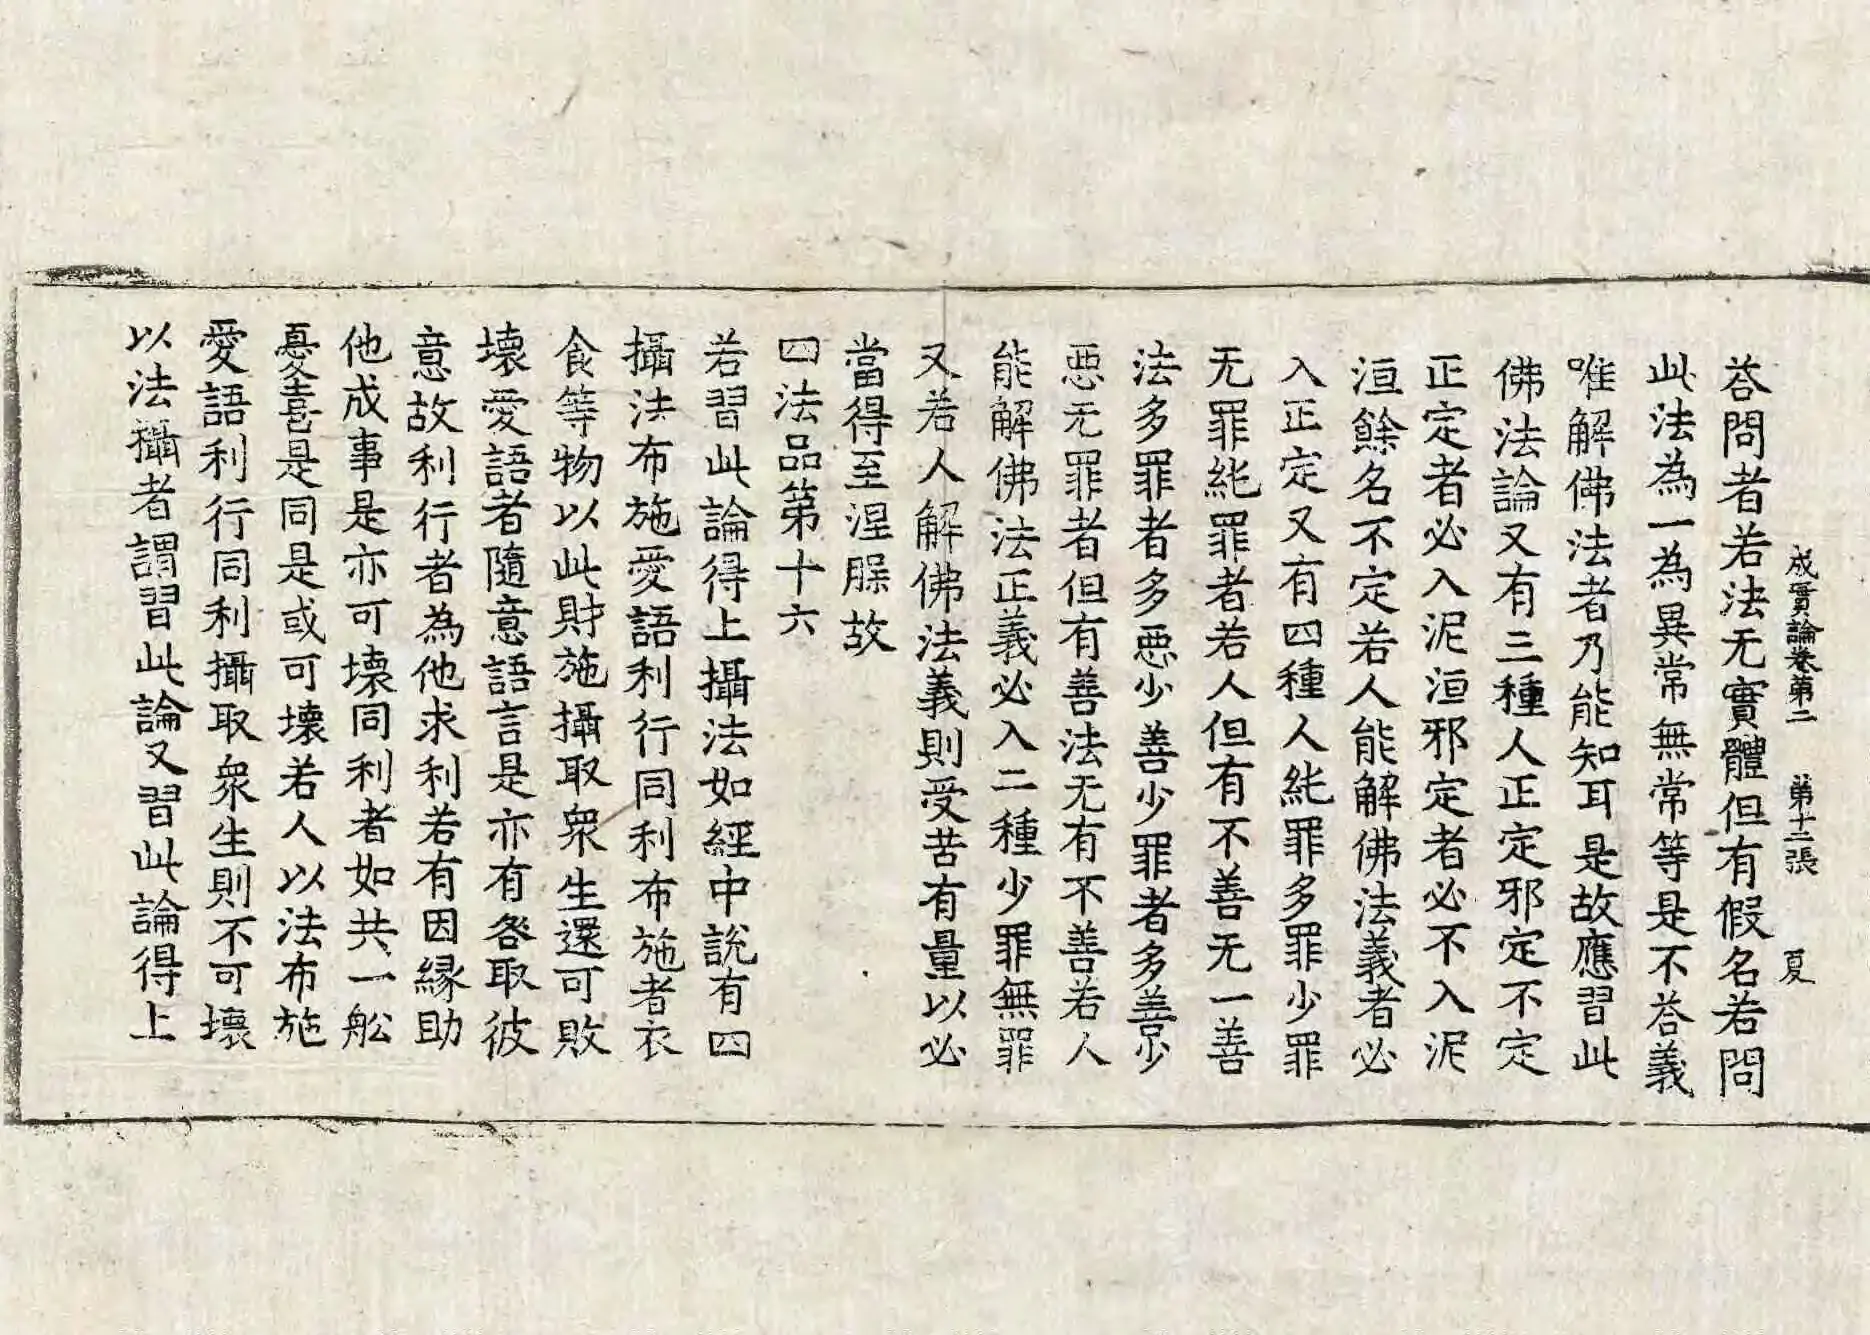 成實論卷第二 第十二張 夏
荅問者若法无實體但有假名若問
此法為一為異常無常等是不荅義
唯解佛法者乃能知耳是故應習此
佛法論又有三種人正定邪定不定
正定者必入泥洹邪定者必不入泥
洹餘名不定若人能解佛法義者必
入正定又有四種人純罪多罪少罪
无罪純罪者若人但有不善无一善
法多罪者多惡少善少罪者多善少
惡无罪者但有善法无有不善若人
能解佛法正義必入二種少罪無罪
又若人解佛法義則受苦有量以必
當得至涅槃故
四法品第十六
若習此論得上攝法如經中說有四
攝法布施愛語利行同利布施者衣
食等物以此財施攝取衆生還可敗
壞愛語者隨意語言是亦有咎取彼
意故利行者為他求利若有因緣助
他成事是亦可壞同利者如共一舩
憂喜是同是或可壞若人以法布施
愛語利行同利攝取衆生則不可壞
以法攝者謂習此論又習此論得上